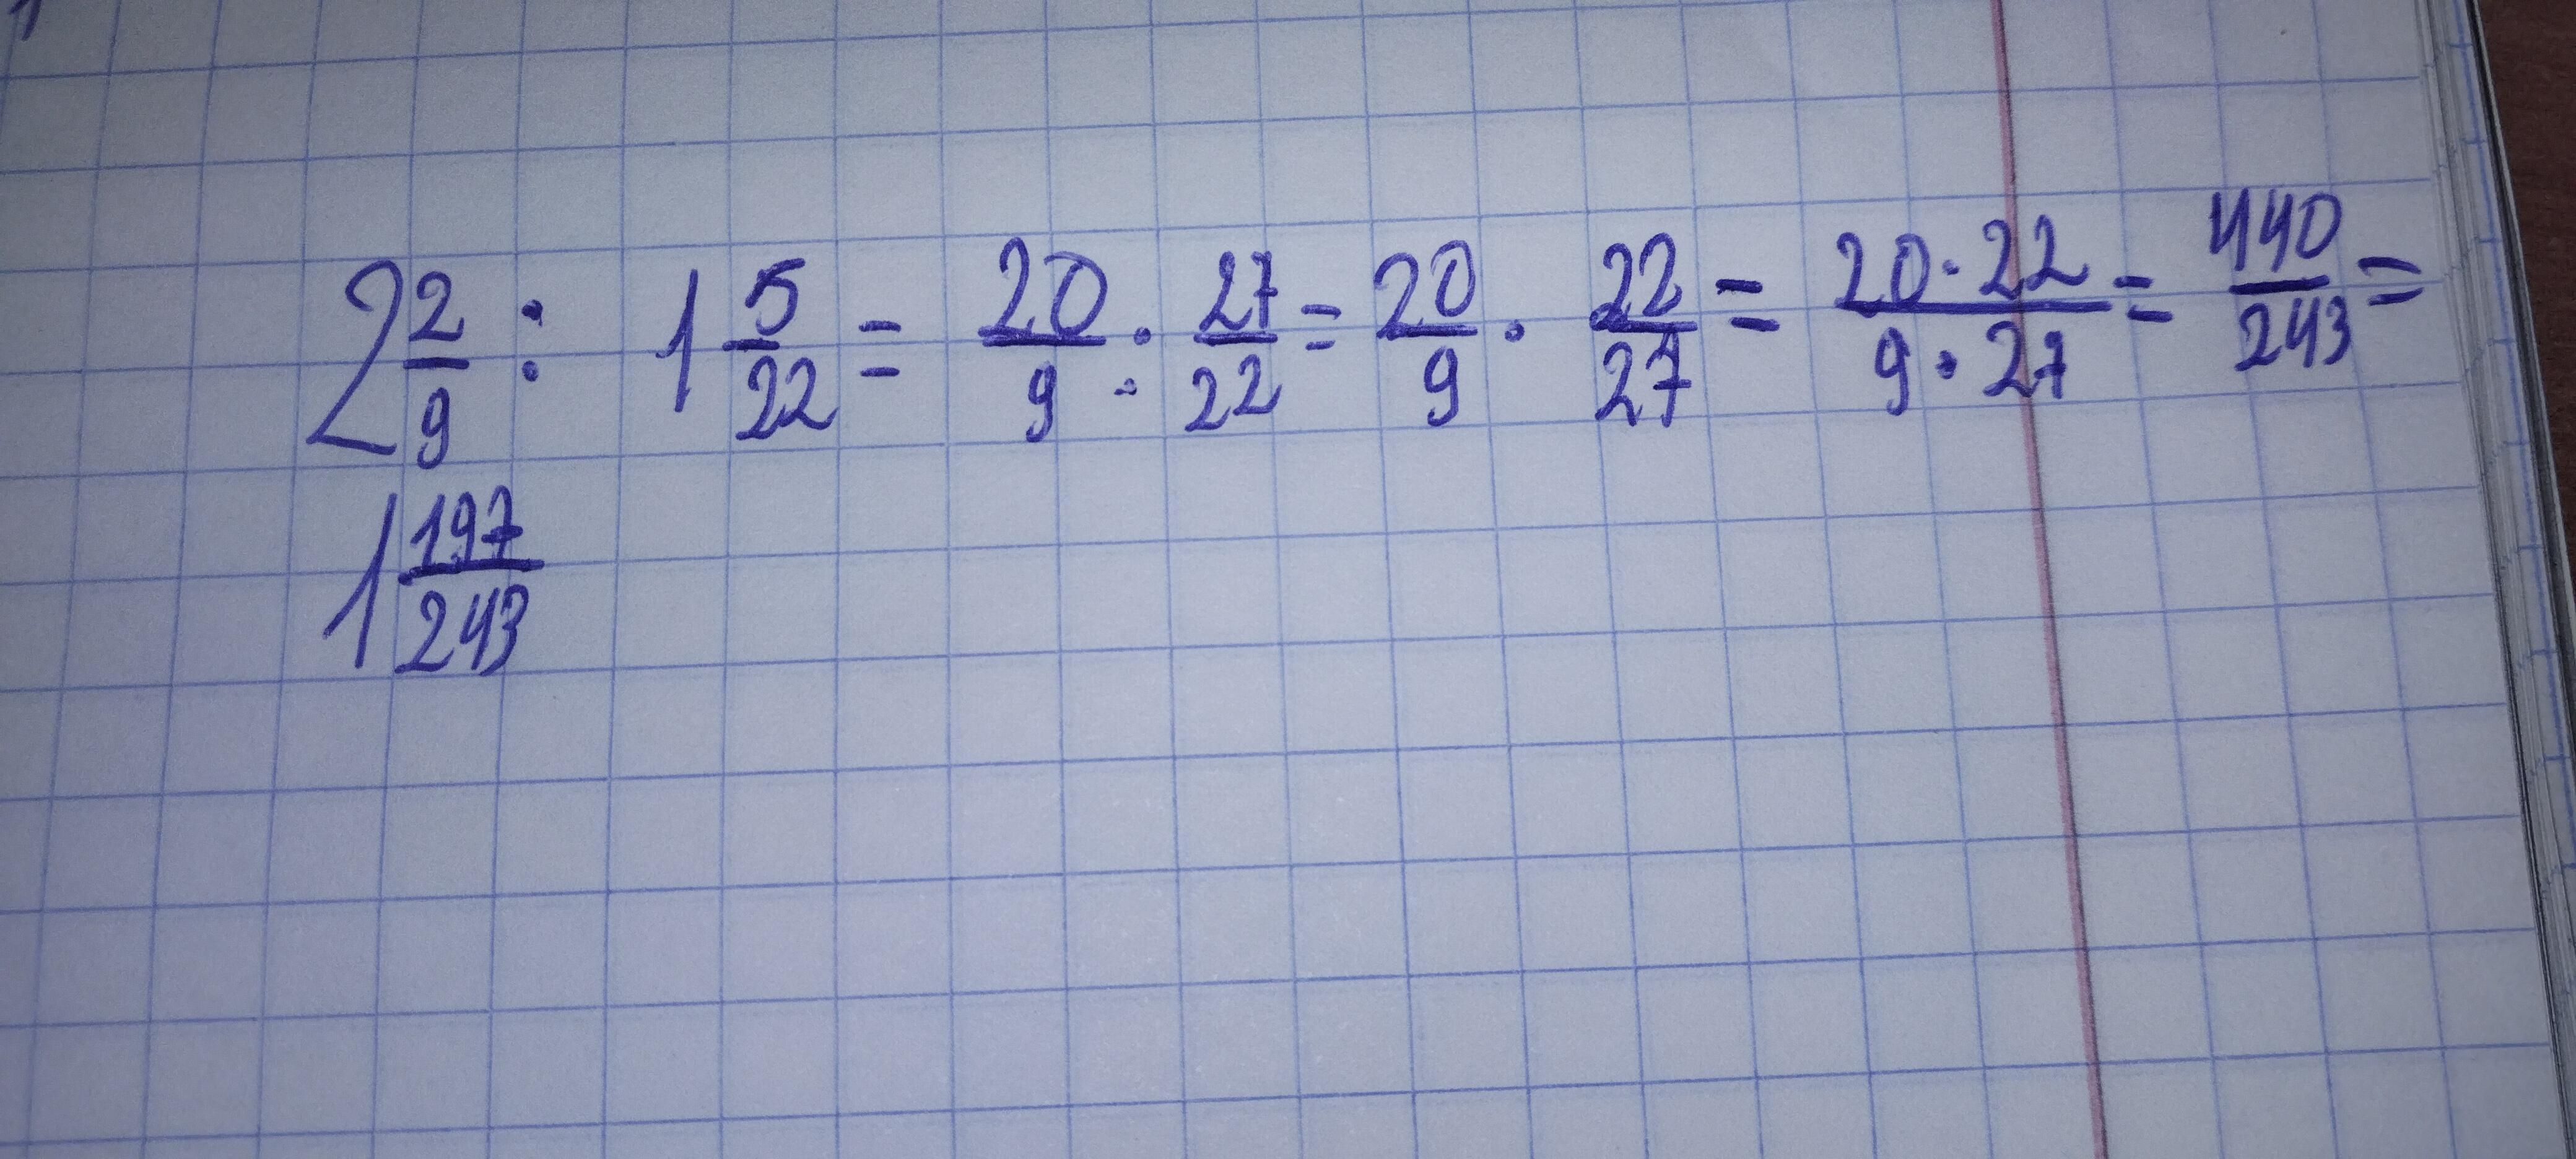 2 2/9 : 1 5/22 = 20/9 : 27/22 = 20/9 · 22/27 = 20·22/9·27 = 440/243 =
1 197/243